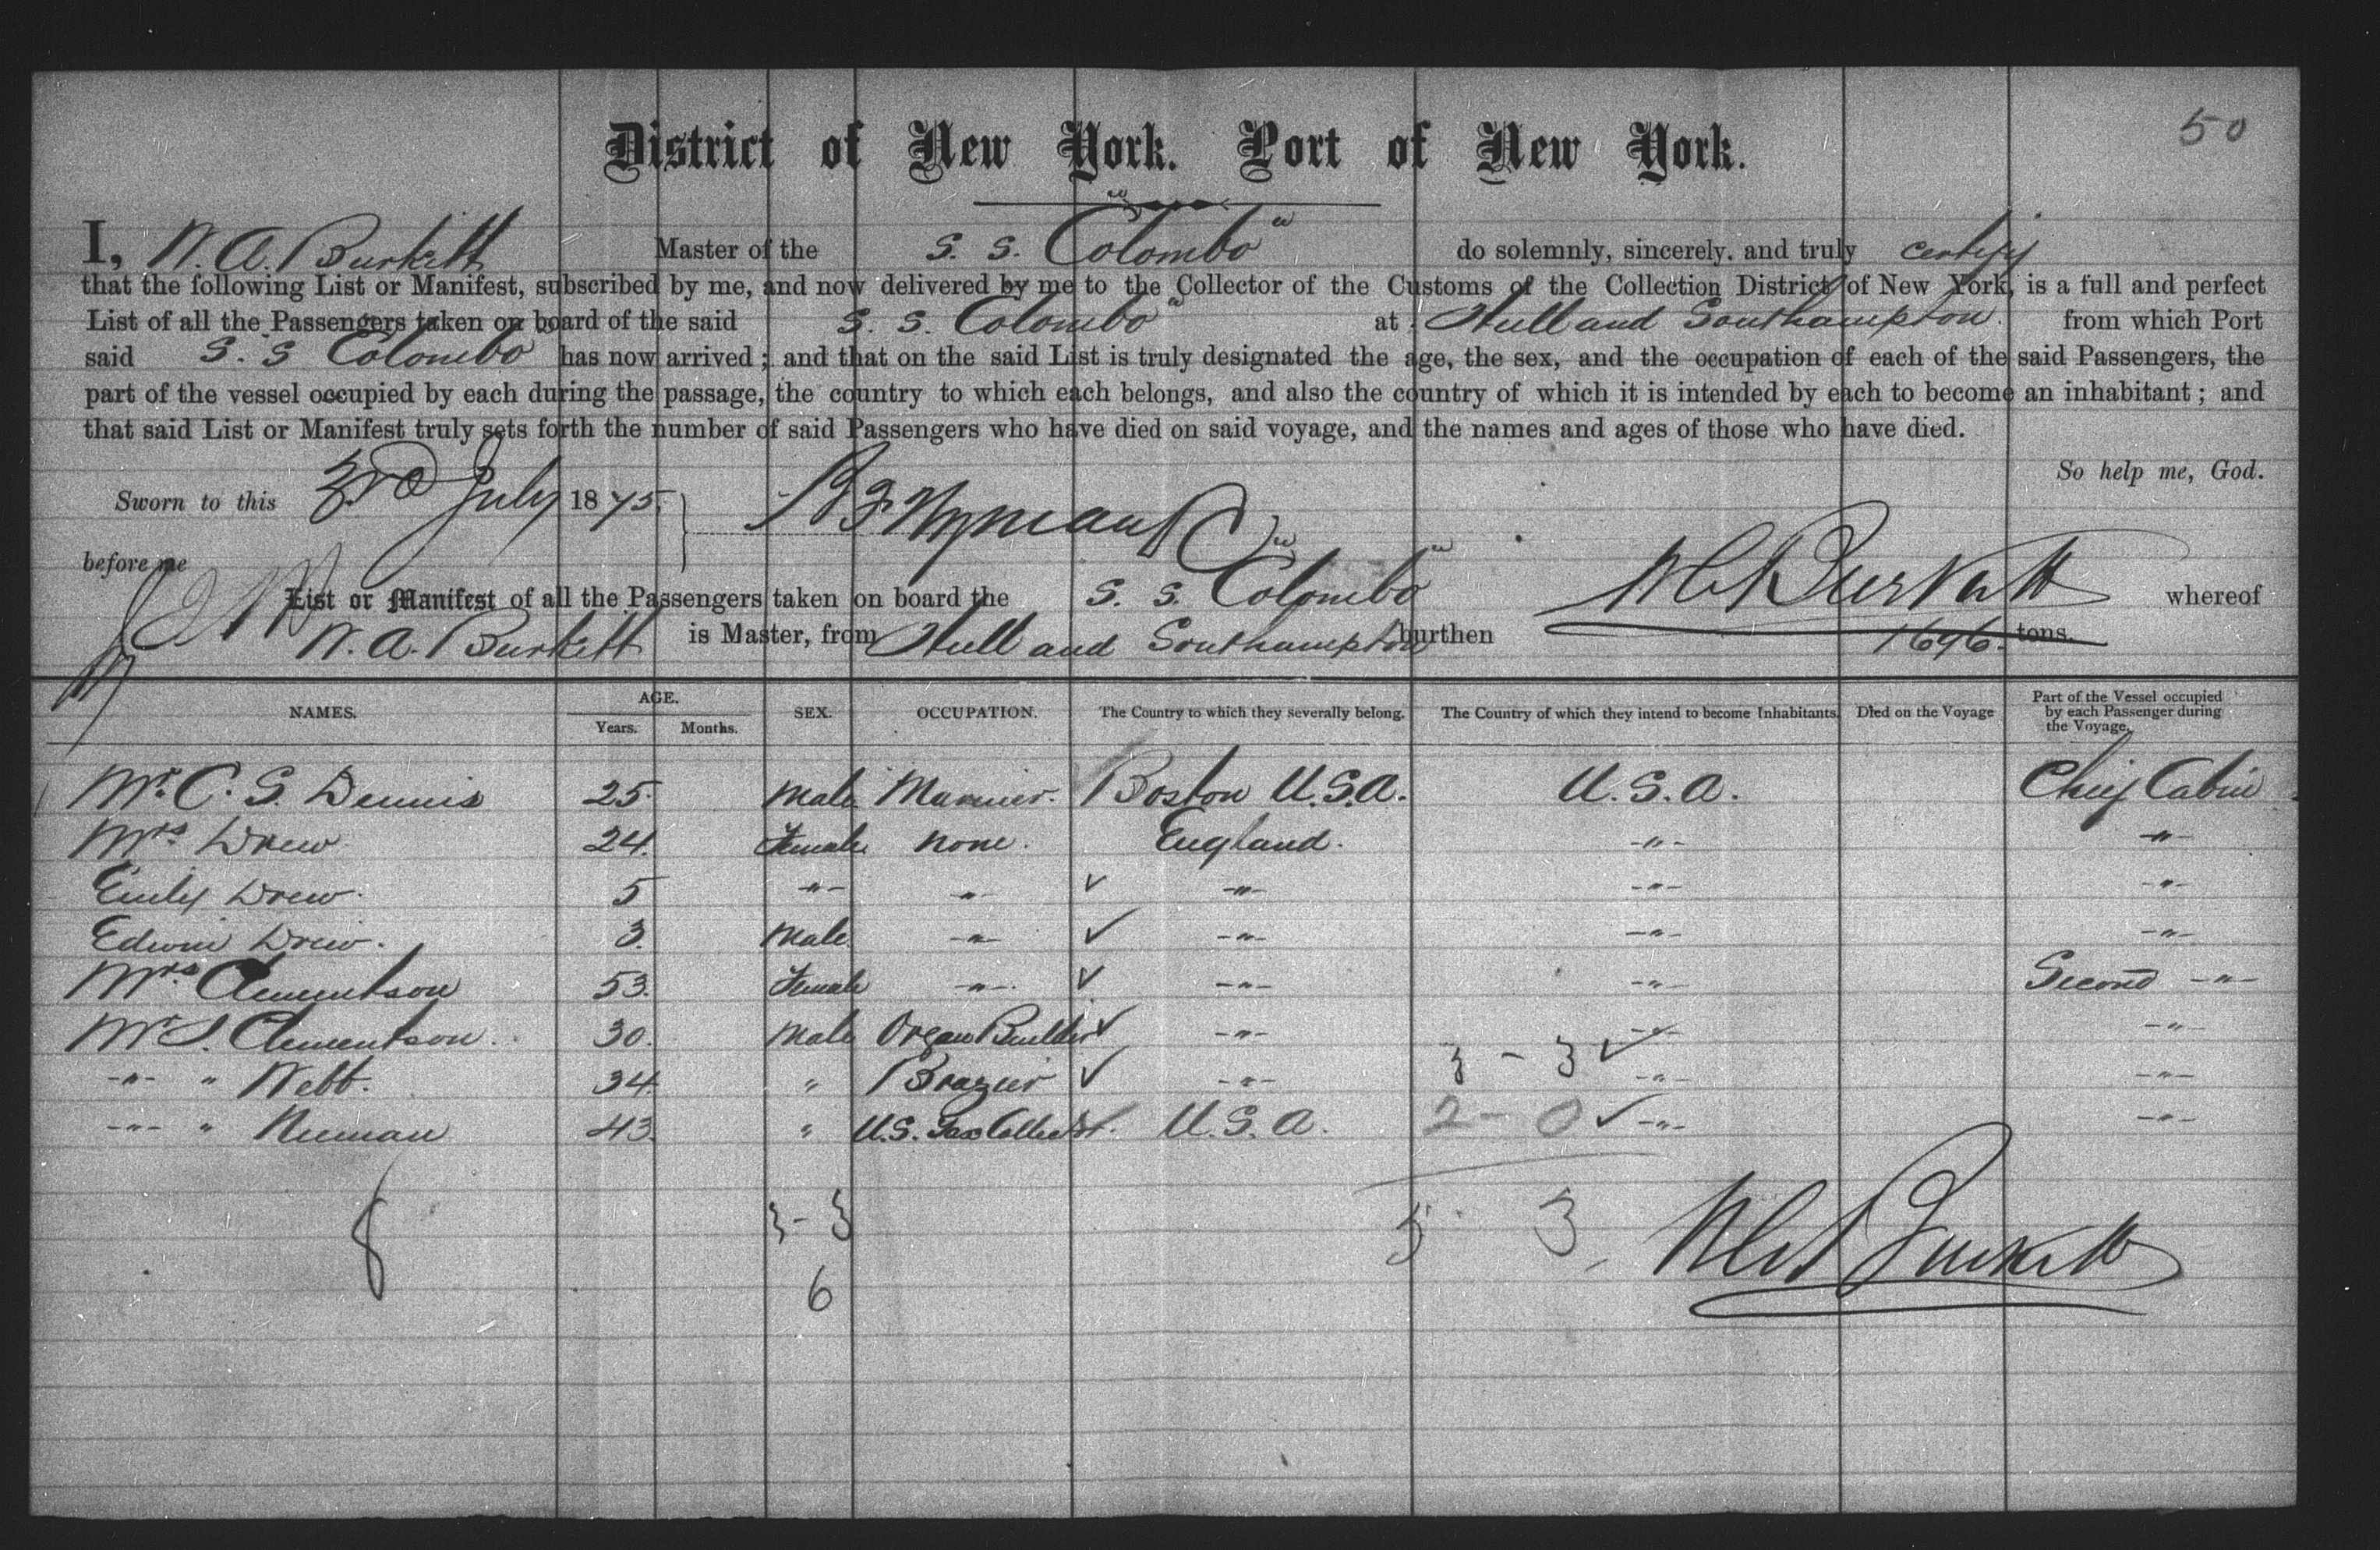 50
District of New York. Port of New York.
I, W. A. Burkitt Master of the S. S. "Colombo" do solemnly, sincerely, and truly certify
that the following List or Manifest, subscribed by me, and now delivered by me to the Collector of the Customs of the Collection District of New York, is a full and perfect
List of all the Passengers taken on board of the said S. S. "Colombo" at Hull and Southampton. from which Port
said S. S "Colombo" has now arrived; and that on the said List is truly designated the age, the sex, and the occupation of each of the said Passengers, the
part of the vessel occupied by each during the passage, the country to which each belongs, and also the country of which it is intended by each to become an inhabitant; and
that said List or Manifest truly sets forth the number of said Passengers who have died on said voyage, and the names and ages of those who have died.
So help me, God.
Sworn to this 3rd July 1875.
before me
List or Manifest of all the Passengers taken on board the S. S. "Colombo" whereof
W. A. Burkitt is Master, from Hull and Southampton burthen 1696. tons.
NAMES. AGE. Years. Months. SEX. OCCUPATION. The Country to which they severally belong. The Country of which they intend to become Inhabitants. Died on the Voyage Part of the Vessel occupied by each Passenger during the Voyage.
Mr. C. S. Dennis 25. Male Mariner. Boston U.S.A. U.S.A. Chief Cabin
Mrs Drew 24. Female None. England. -"- -"-
Emily Drew. 5 -"- -"- ✓ -"- -"- -"-
Edwin Drew. 3. Male -"- ✓ -"- -"- -"-
Mrs Clementson 53. Female -"- ✓ -"- -"- Second -"-
Mr S. Clementson. 30. Male Organ Builder ✓ -"- -"- -"-
-"- " Webb. 34. " Brazier ✓ -"- 3 - 3 ✓ -"- -"-
-"- " Neuman 43. " U.S. Tax Collector. U.S.A. 2 - 0 ✓ -"- -"-
8 3 - 3 5 3
6